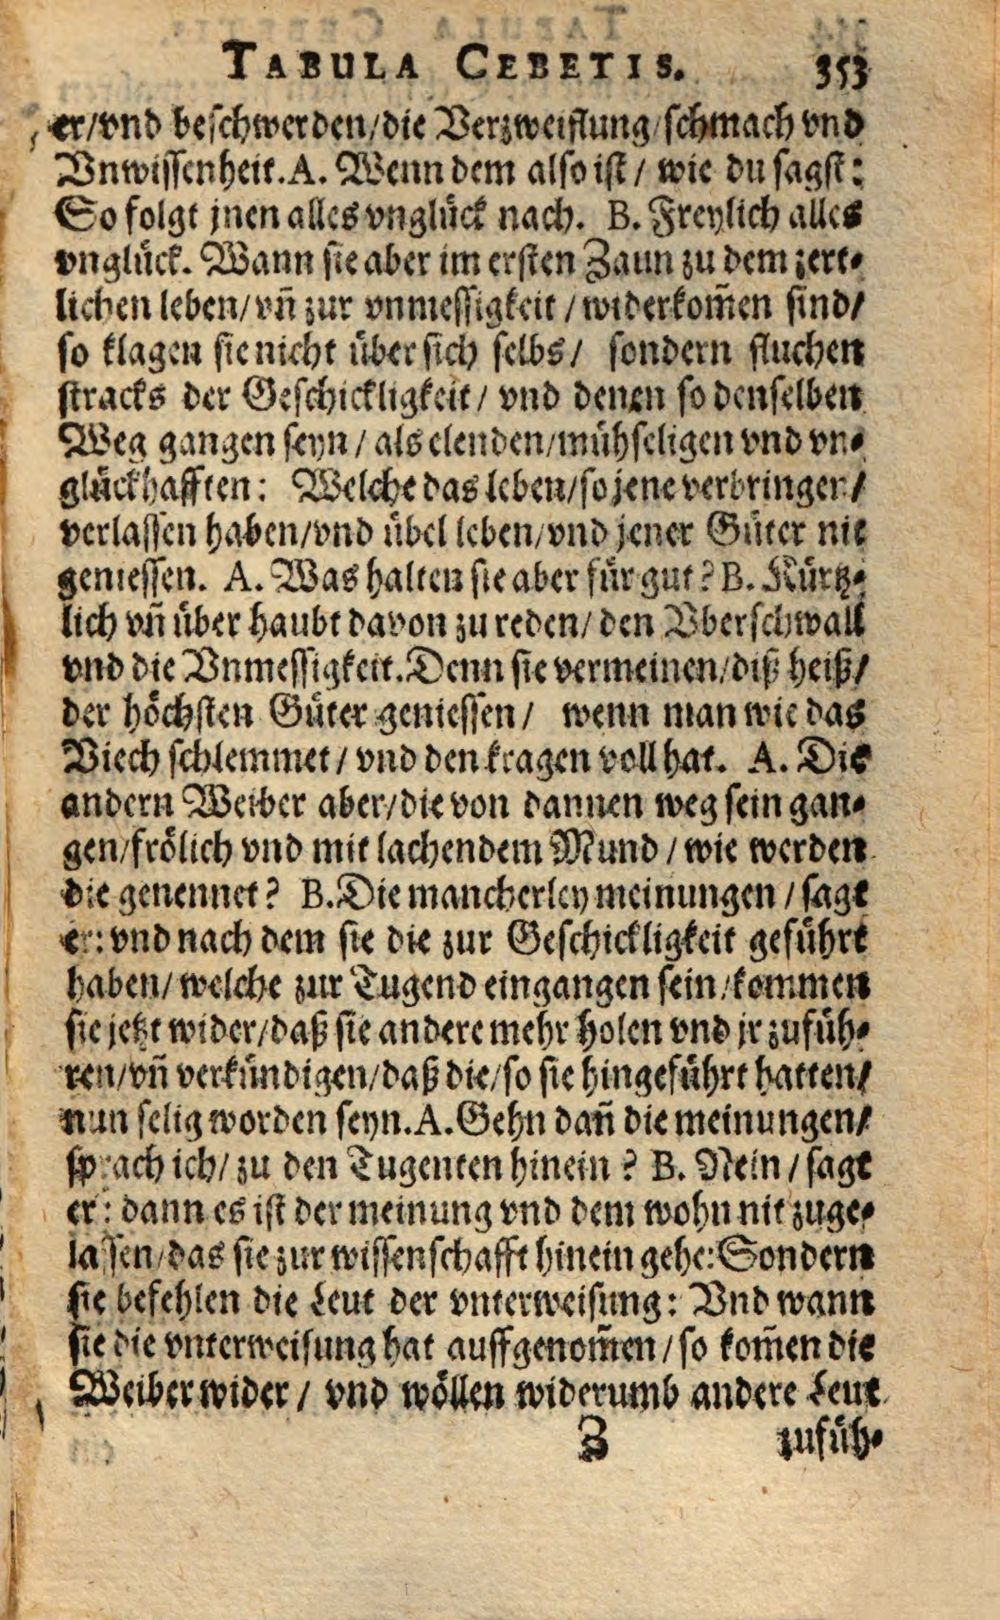 TABULA CEBETIS. 353
er/vnd beschwerden/die Verzweiflung/schmach vnd
Vnwissenheit. A. Wenn dem also ist / wie du sagst:
So folgt jnen alles vnglück nach. B. Freylich alles
vnglück. Wann sie aber im ersten Zaun zu dem zert-
lichen leben/ vñ zur vnmessigkeit / widerkom̃en sind/
so klagen sie nicht über sich selbs/ sondern fluchen
stracks der Geschickligkeit/ vnd denen so denselben
Weg gangen seyn / als elenden/mühseligen vnd vn-
glückhafften: Welche das leben/so jene verbringen/
verlassen haben/vnd übel leben/vnd jener Güter nit
geniessen. A. Was halten sie aber für gut? B. Kürtz-
lich vñ über haubt davon zu reden/ den Vberschwall
vnd die Vnmessigkeit. Denn sie vermeinen/diß heiß/
der höchsten Güter geniessen/ wenn man wie das
Viech schlemmet/ vnd den kragen voll hat. A. Die
andern Weiber aber/die von dannen weg sein gan-
gen/frölich vnd mit lachendem Mund / wie werden
die genennet? B. Die mancherley meinungen / sagt
er: vnd nach dem sie die zur Geschickligkeit geführt
haben/ welche zur Tugend eingangen sein/kommen
sie jetzt wider/daß sie andere mehr holen vnd jr zufüh-
ren/vñ verkündigen/daß die/so sie hingeführt hatten/
nun selig worden seyn. A. Gehn dañ die meinungen/
sprach ich/ zu den Tugenten hinein? B. Nein / sagt
er: dann es ist der meinung vnd dem wohn nit zuge-
lassen/das sie zur wissenschafft hinein gehe: Sondern
sie befehlen die Leut der vnterweisung: Vnd wann
sie die vnterweisung hat auffgenom̃en / so kom̃en die
Weiber wider / vnd wöllen widerumb andere Leut
Z zufüh-